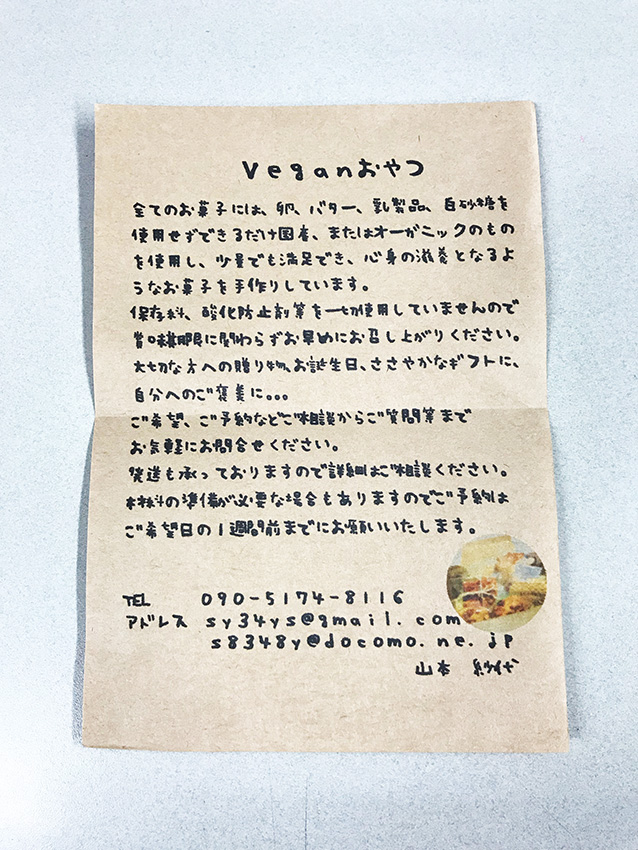 Veganおやつ
全てのお菓子には、卵、バター、乳製品、白砂糖を
使用せずできるだけ国産、またはオーガニックのもの
を使用し、少量でも満足でき、心身の滋養となるよ
うなお菓子を手作りしています。
保存料、酸化防止剤等を一切使用していませんので
賞味期限に関わらずお早めにお召し上がりください。
大切な方への贈り物、お誕生日、ささやかなギフトに、
自分へのご褒美に。。。
ご希望、ご予約などご相談からご質問等まで
お気軽にお問合せください。
発送も承っておりますので詳細はご相談ください。
材料の準備が必要な場合もありますのでご予約は
ご希望日の1週間前までにお願いいたします。
TEL 090-5174-8116
アドレス sy34ys@gmail.com
s8348y@docomo.ne.jp
山本 紗代